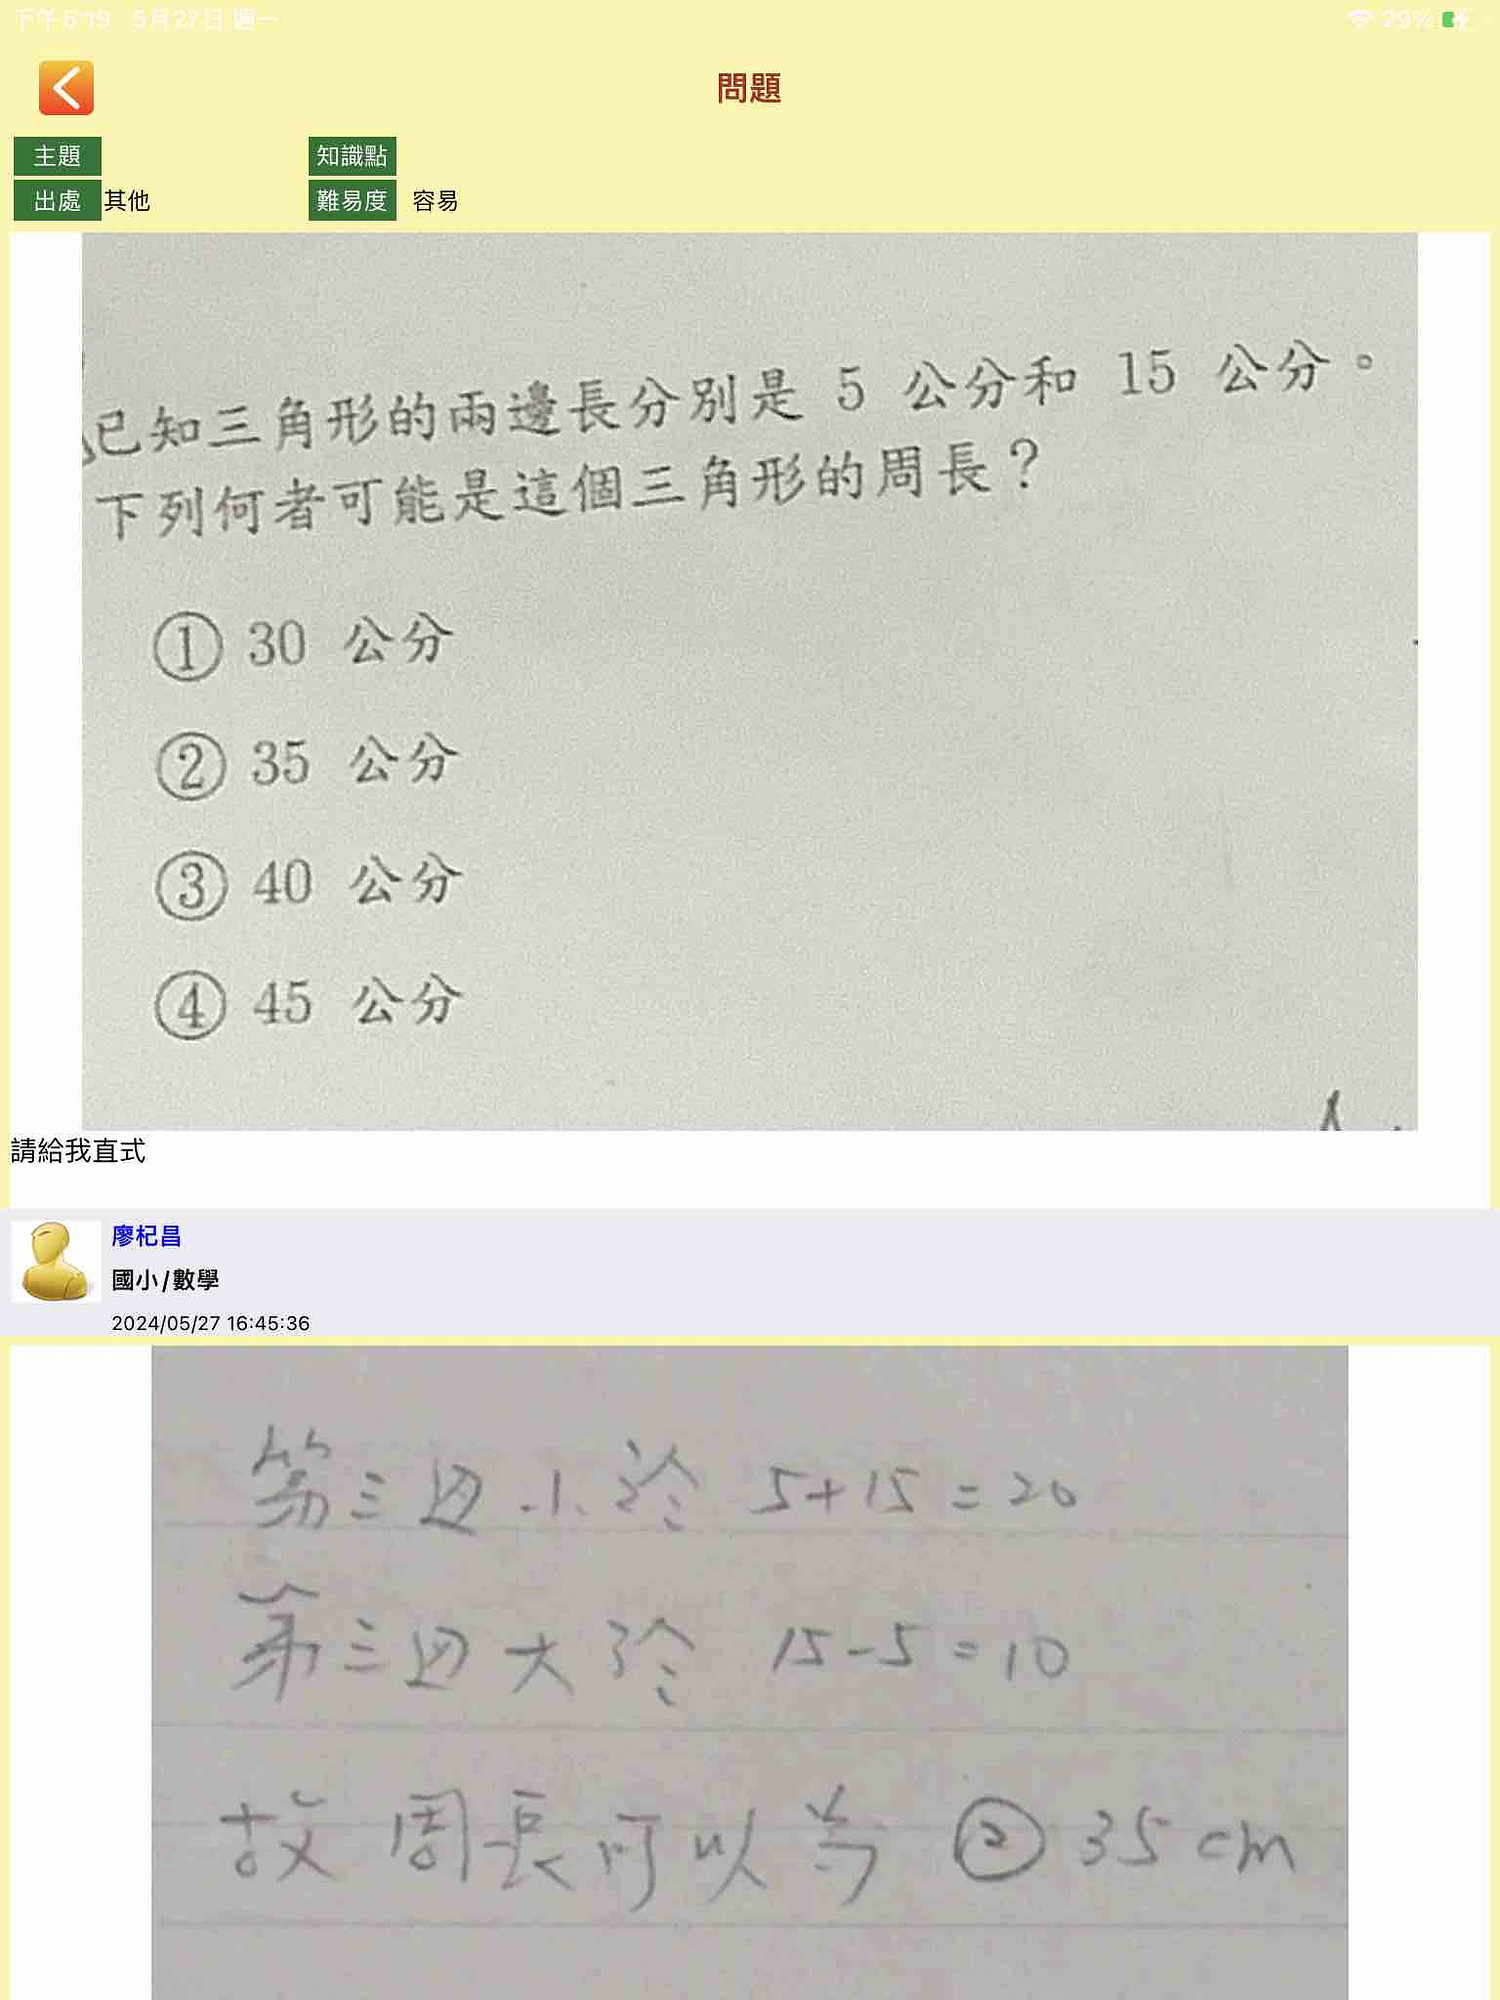 下午5:19 5月27日 週一
29%
問題
主題
知識點
出處 其他
難易度 容易
已知三角形的兩邊長分別是 5 公分和 15 公分。
下列何者可能是這個三角形的周長？
① 30 公分
② 35 公分
③ 40 公分
④ 45 公分
請給我直式
廖杞昌
國小/數學
2024/05/27 16:45:36
第三边小於 5+15=20
第三边大於 15-5=10
故周長可以為 ② 35 cm